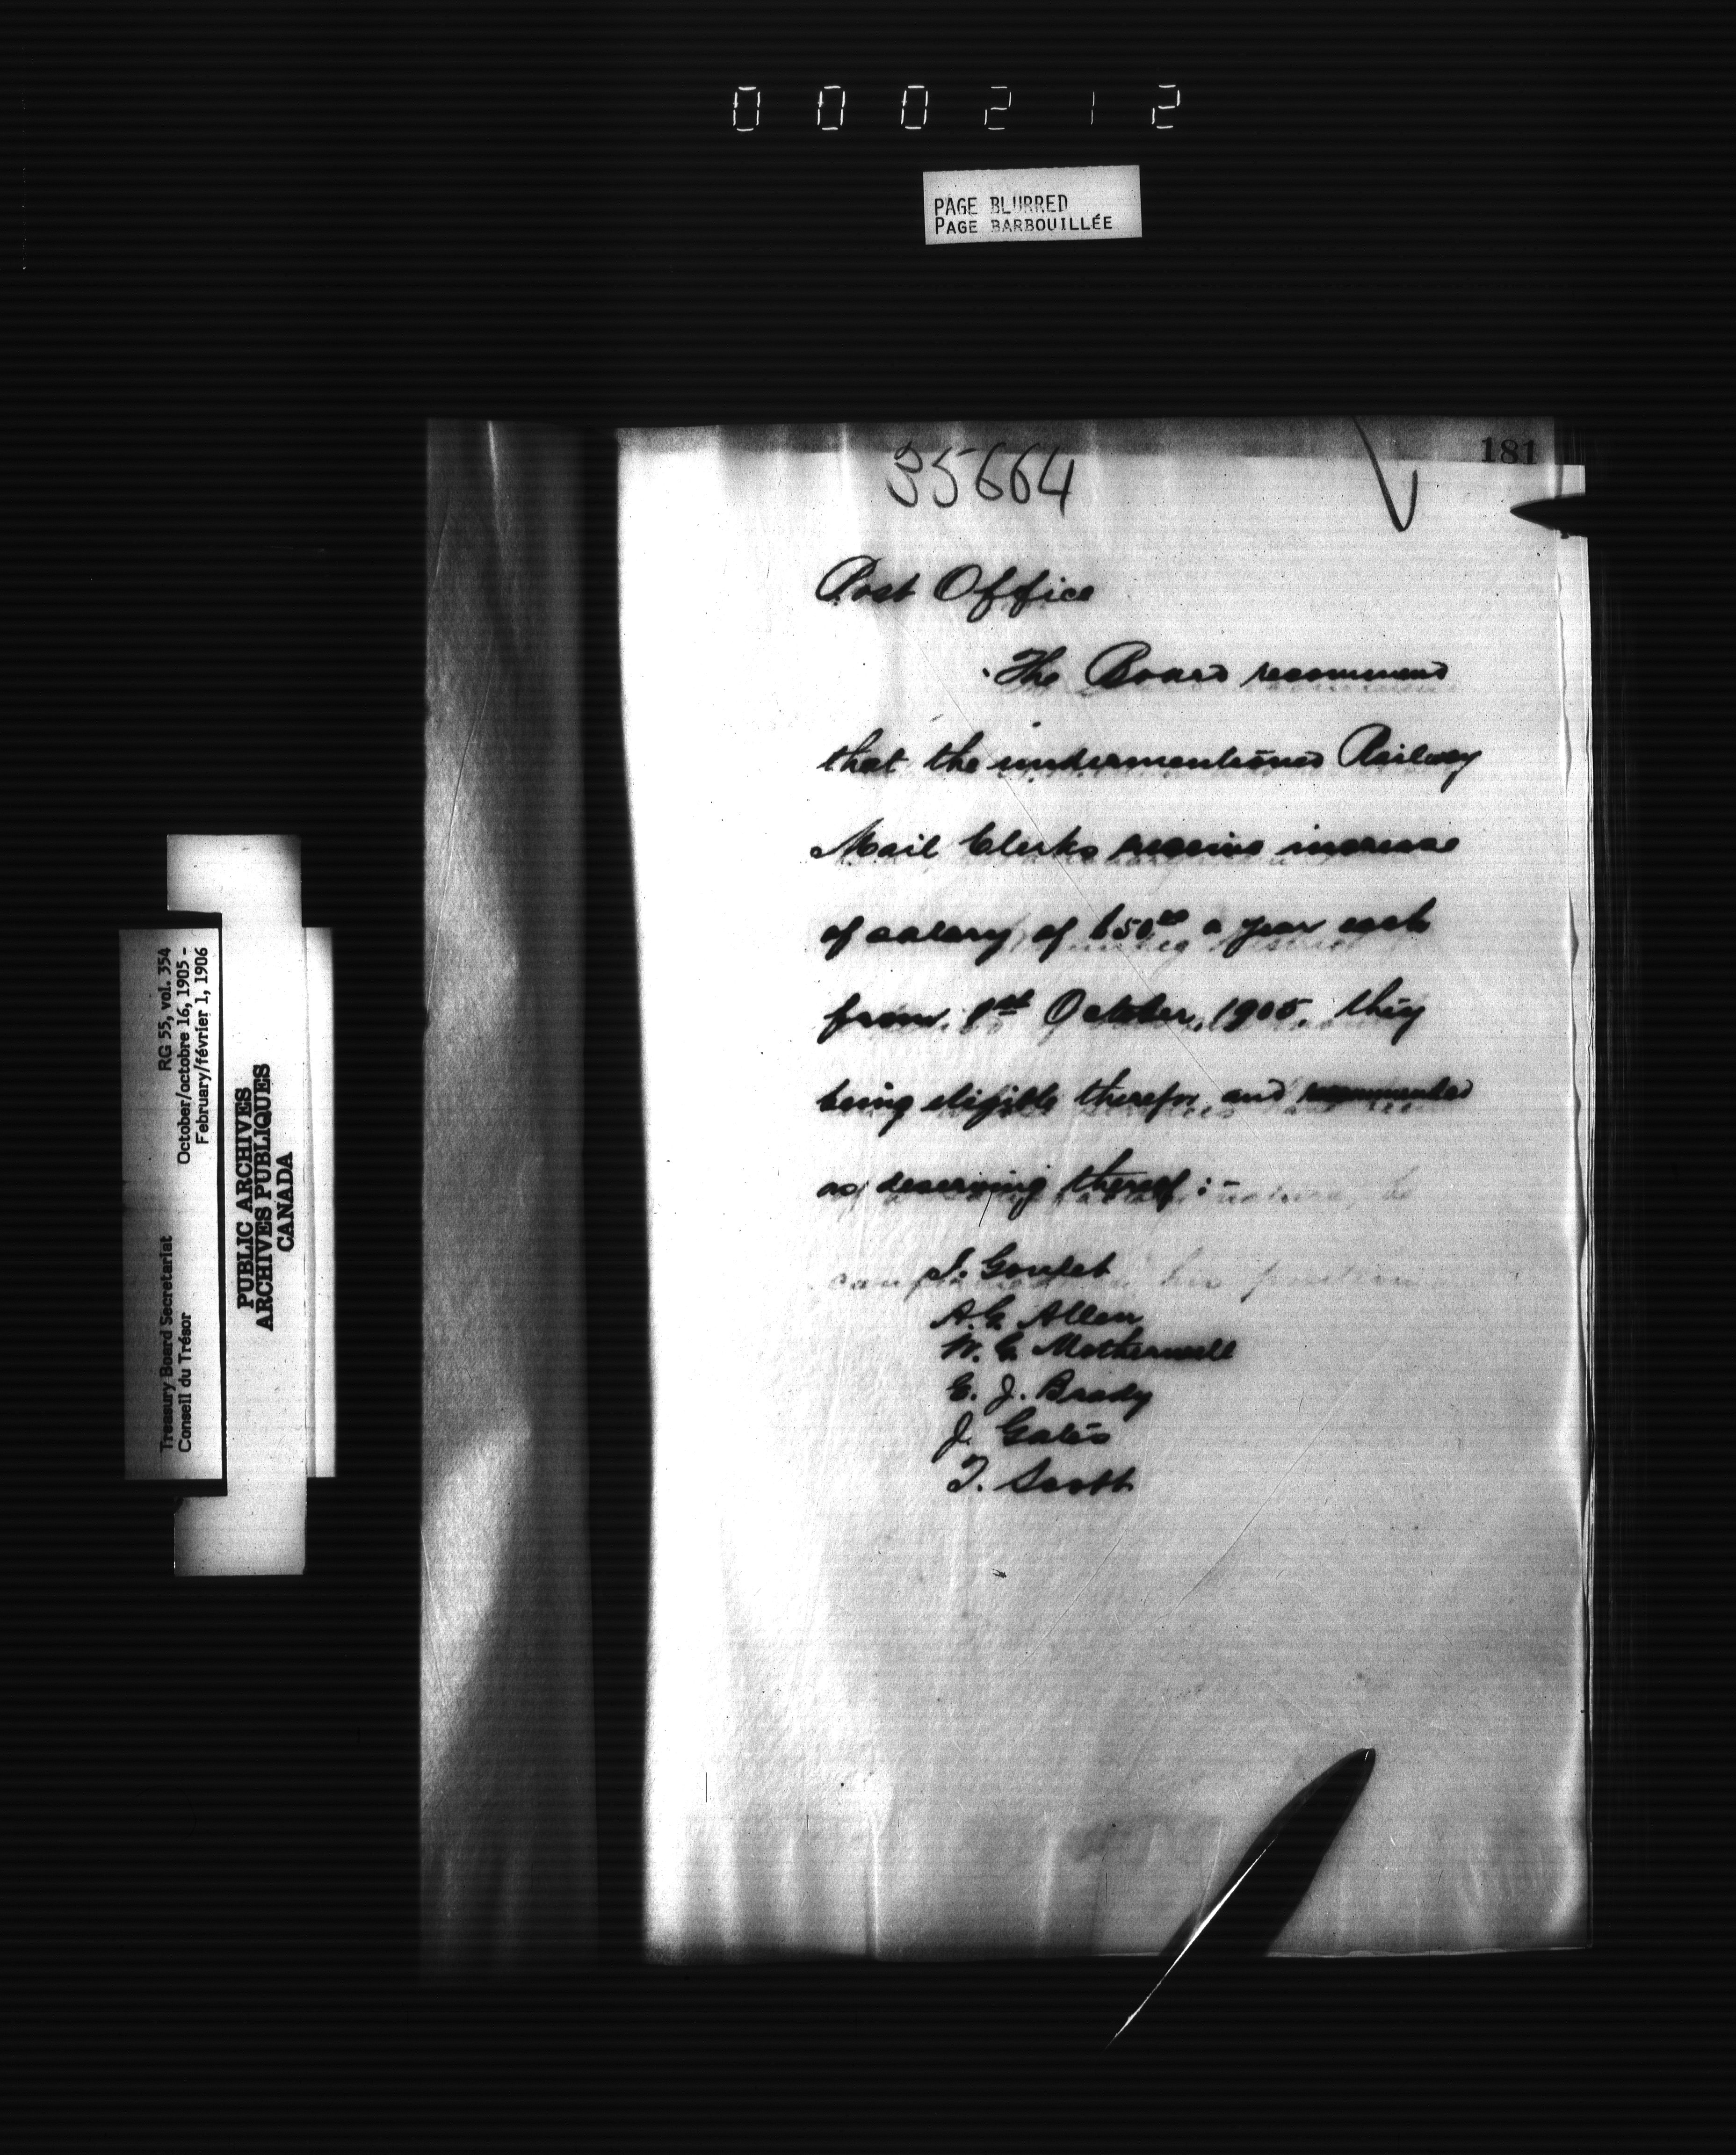 000212
PAGE BLURRED
PAGE BARBOUILLÉE
181
35664
Post Office
The Board recommend
that the undermentioned Railway
Mail Clerks receive increase
of salary of $50⁰⁰ a year each
from 1st October, 1905, they
being eligible therefor and recommended
as deserving thereof :-
J. Goulet
A. G. Allen
W. G. Motherwell
E. J. Brady
J. Gates
T. Scott
Treasury Board Secretariat RG 55, vol. 354
Conseil du Trésor October/octobre 16, 1905 -
February/février 1, 1906
PUBLIC ARCHIVES
ARCHIVES PUBLIQUES
CANADA